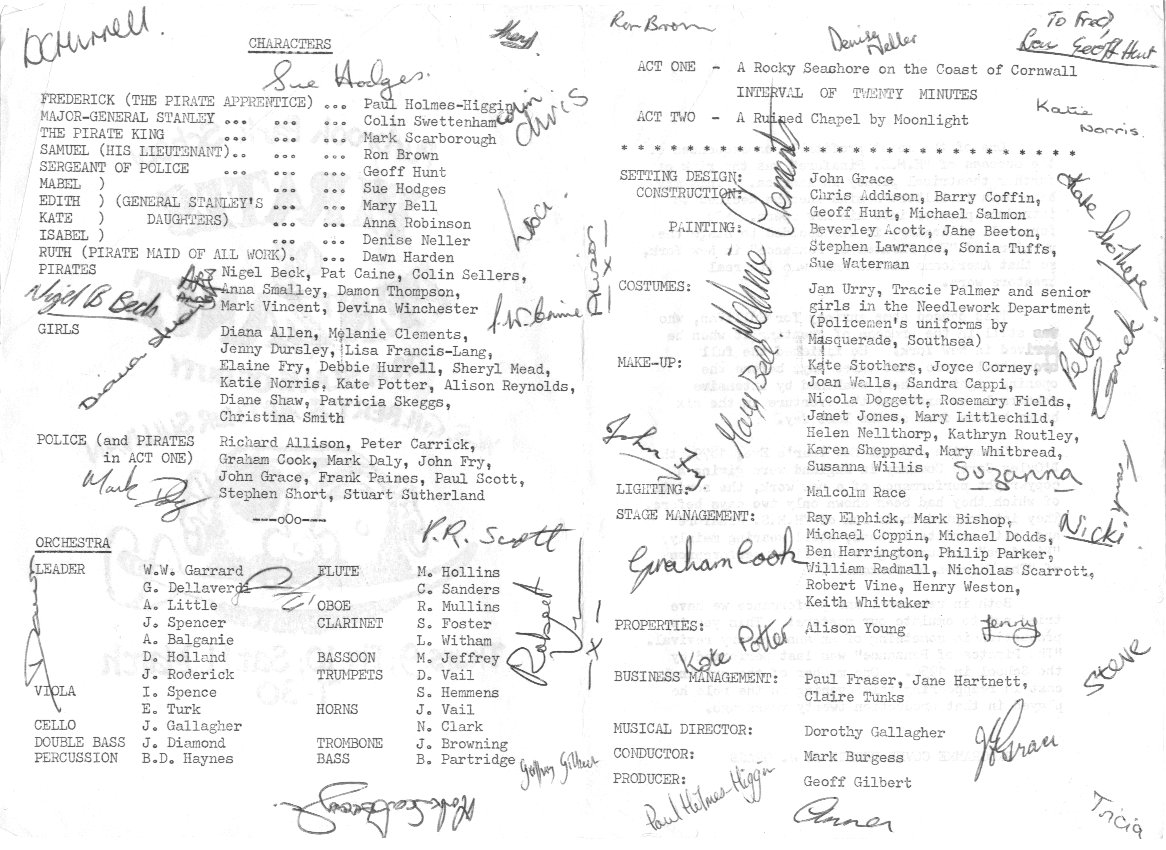 DCHurrell.
CHARACTERS
Sue Hodges.
FREDERICK (THE PIRATE APPRENTICE) ... Paul Holmes-Higgin
MAJOR-GENERAL STANLEY ... ... ... Colin Swettenham
THE PIRATE KING ... ... Mark Scarborough
SAMUEL (HIS LIEUTENANT).. ... ... Ron Brown
SERGEANT OF POLICE ... ... ... Geoff Hunt
MABEL ) ... ... Sue Hodges
EDITH ) (GENERAL STANLEY'S ... ... Mary Bell
KATE ) DAUGHTERS) ... ... Anna Robinson
ISABEL ) ... ... Denise Neller
RUTH (PIRATE MAID OF ALL WORK). ... ... Dawn Harden
PIRATES Nigel Beck, Pat Caine, Colin Sellers,
Anna Smalley, Damon Thompson,
Mark Vincent, Devina Winchester
Nigel B Beck
GIRLS Diana Allen, Melanie Clements,
Jenny Dursley, Lisa Francis-Lang,
Elaine Fry, Debbie Hurrell, Sheryl Mead,
Katie Norris, Kate Potter, Alison Reynolds,
Diane Shaw, Patricia Skeggs,
Christina Smith
POLICE (and PIRATES Richard Allison, Peter Carrick,
in ACT ONE) Graham Cook, Mark Daly, John Fry,
John Grace, Frank Paines, Paul Scott,
Stephen Short, Stuart Sutherland
Mark Daly
---oOo---
P.R. Scott
ORCHESTRA
LEADER W.W. Garrard FLUTE M. Hollins
G. Dellaverde C. Sanders
A. Little OBOE R. Mullins
J. Spencer CLARINET S. Foster
A. Balganie L. Witham
D. Holland BASSOON M. Jeffrey
J. Roderick TRUMPETS D. Vail
VIOLA I. Spence S. Hemmens
E. Turk HORNS J. Vail
CELLO J. Gallagher N. Clark
DOUBLE BASS J. Diamond TROMBONE J. Browning
PERCUSSION B.D. Haynes BASS B. Partridge
Robert
Geoffrey Gilbert
Ron Brown
Denise Neller
To Fred,
Geoff Hunt
ACT ONE - A Rocky Seashore on the Coast of Cornwall
INTERVAL OF TWENTY MINUTES
ACT TWO - A Ruined Chapel by Moonlight
Katie Norris.
* * * * * * * * * * * * * * * * * * * * * * * * * * * *
SETTING DESIGN: John Grace
CONSTRUCTION: Chris Addison, Barry Coffin,
Geoff Hunt, Michael Salmon
PAINTING: Beverley Acott, Jane Beeton,
Stephen Lawrance, Sonia Tuffs,
Sue Waterman
Melanie Clement
Kate Stothers
COSTUMES: Jan Urry, Tracie Palmer and senior
girls in the Needlework Department
(Policemen's uniforms by
Masquerade, Southsea)
Mary Bell
Peter Carrick
MAKE-UP: Kate Stothers, Joyce Corney,
Joan Walls, Sandra Cappi,
Nicola Doggett, Rosemary Fields,
Janet Jones, Mary Littlechild,
Helen Nellthorp, Kathryn Routley,
Karen Sheppard, Mary Whitbread,
Susanna Willis
John Fry
Suzanna
Frank
LIGHTING: Malcolm Race
STAGE MANAGEMENT: Ray Elphick, Mark Bishop,
Michael Coppin, Michael Dodds,
Ben Harrington, Philip Parker,
William Radmall, Nicholas Scarrott,
Robert Vine, Henry Weston,
Keith Whittaker
Nicki
Graham Cook
PROPERTIES: Alison Young
Jenny
Kate Potter
Steve
BUSINESS MANAGEMENT: Paul Fraser, Jane Hartnett,
Claire Tunks
MUSICAL DIRECTOR: Dorothy Gallagher
CONDUCTOR: Mark Burgess
PRODUCER: Geoff Gilbert
Paul Holmes-Higgin
Tricia